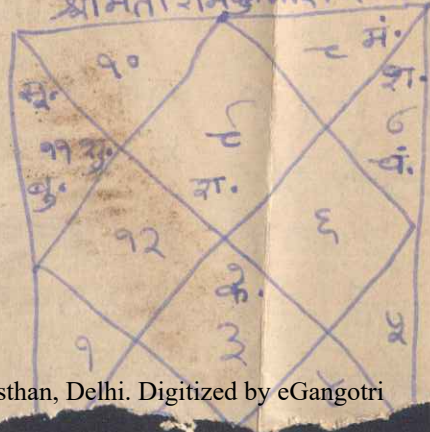 श्रीमती
१० ८ मं.
सू. श.
९ ७
११ शु. चं.
बु. रा.
१२ ६
के.
१ ३ ५
sthan, Delhi. Digitized by eGangotri